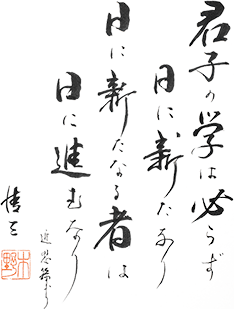 君子の学は必らず
日に新たなり
日に新たなる者は
日に進むなり
近思録より